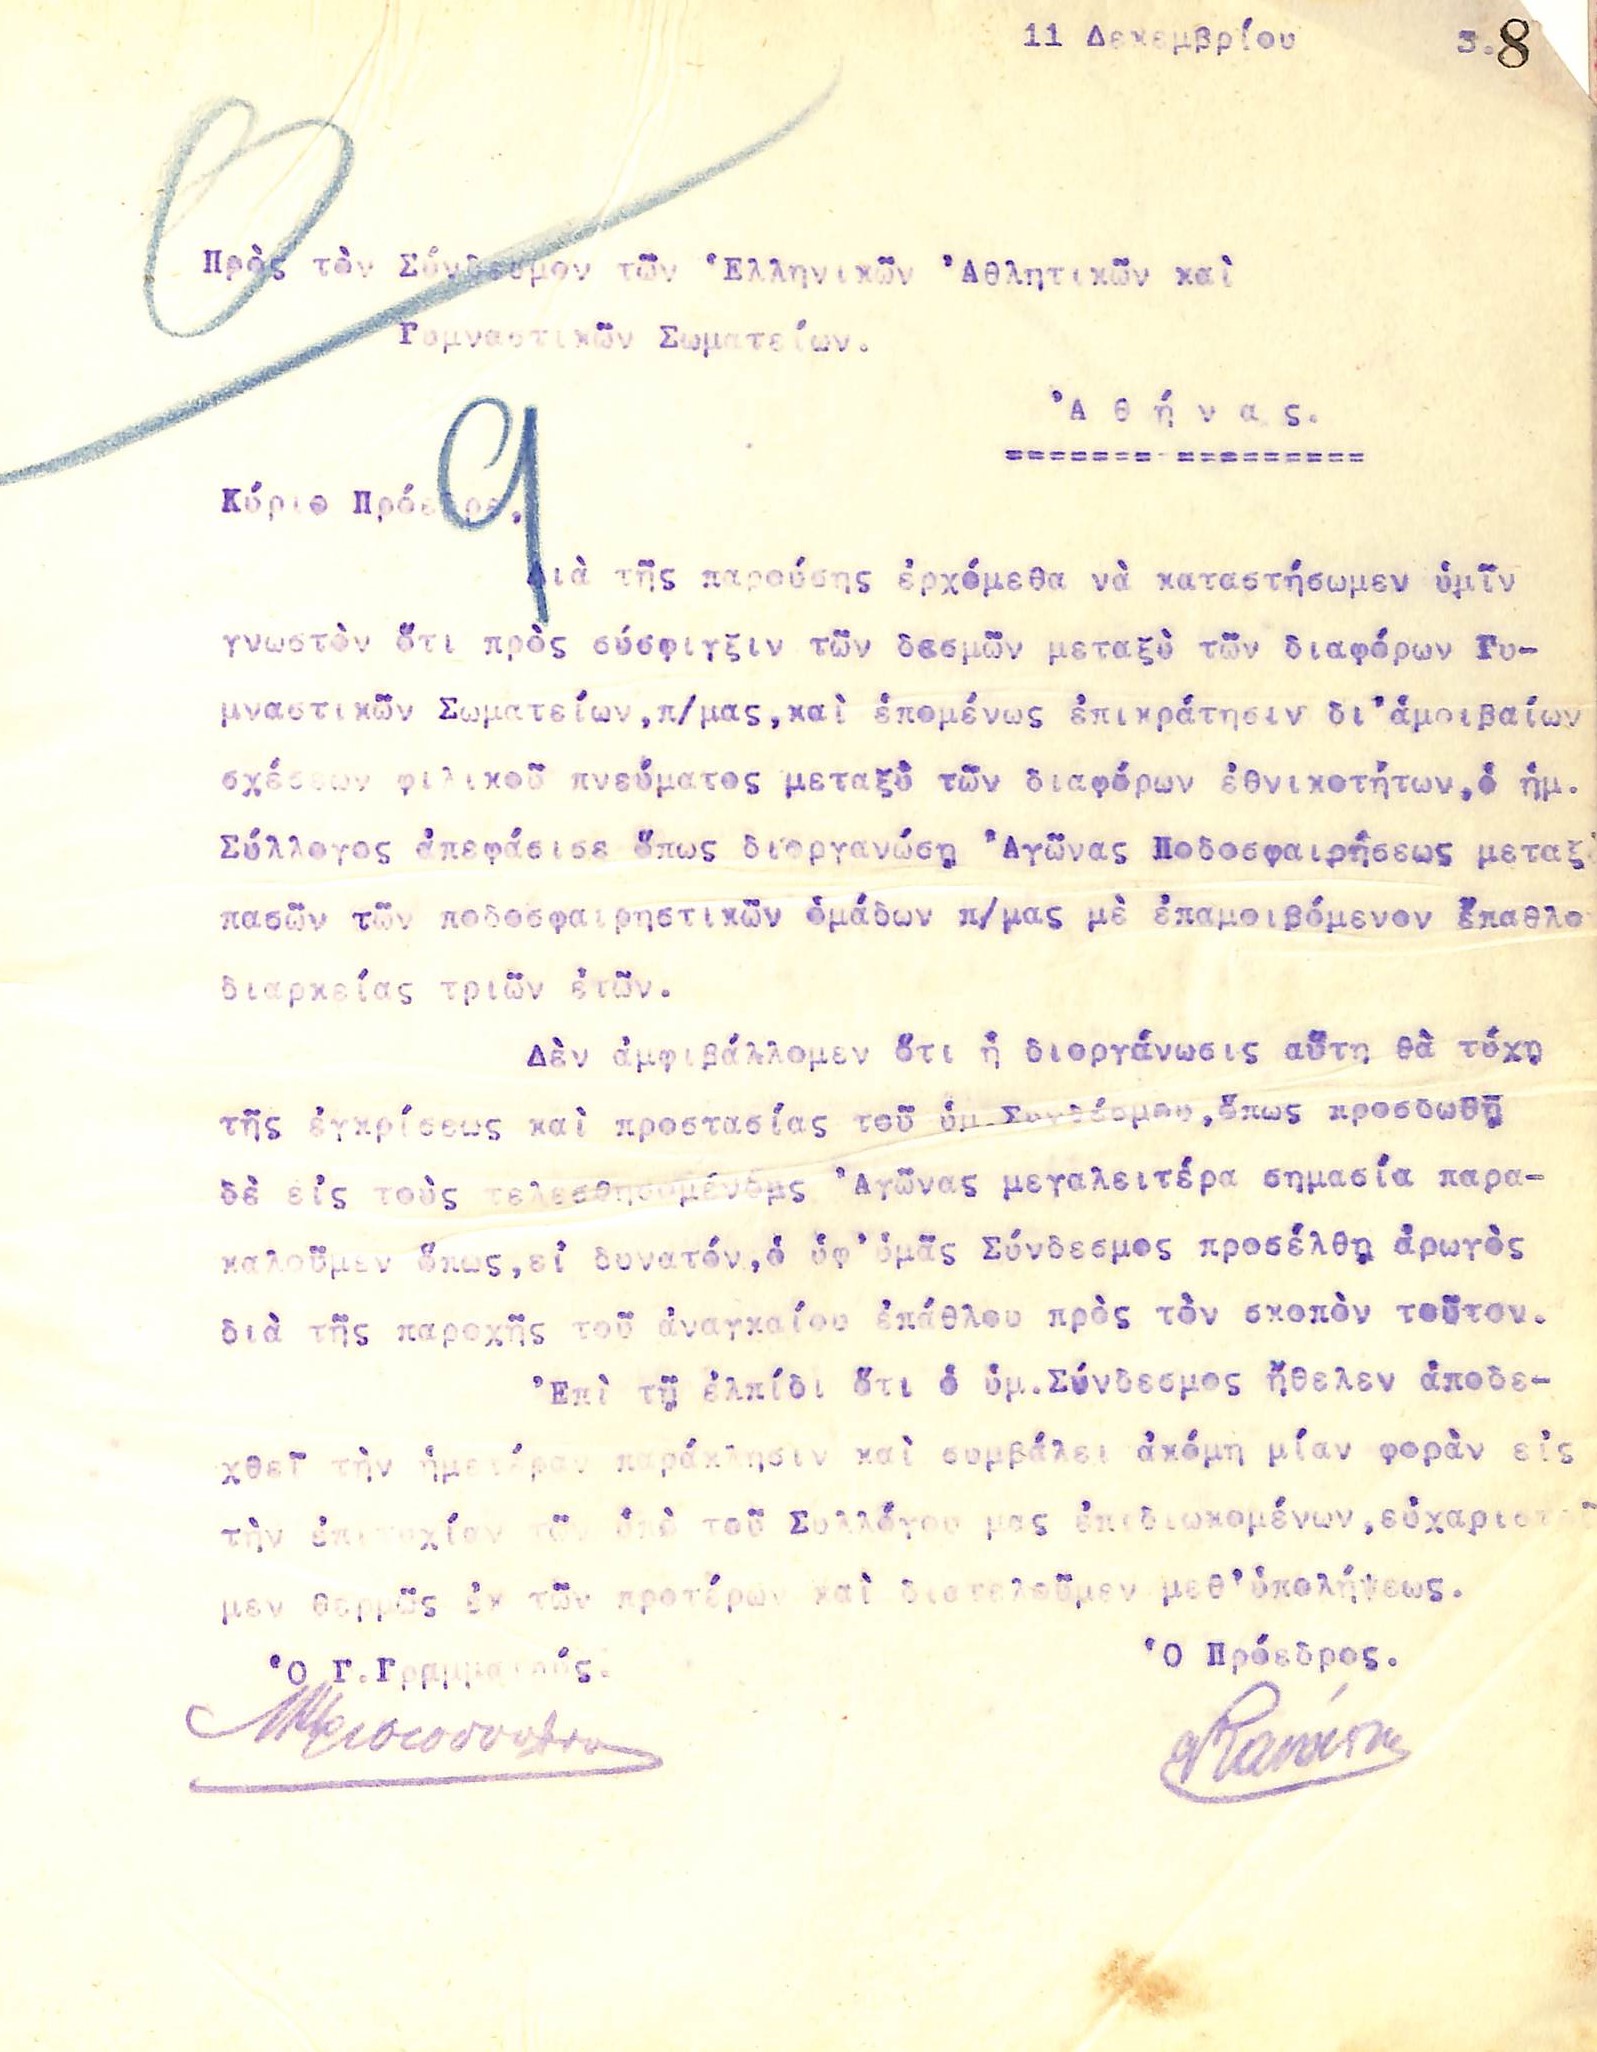 11 Δεκεμβρίου 3.8
Πρὸς τὸν Σύνδεσμον τῶν Ἑλληνικῶν Ἀθλητικῶν καὶ
Γυμναστικῶν Σωματείων.
Ἀ θ ή ν α ς.
Κύριε Πρόεδρε,
9
Διὰ τῆς παρούσης ἐρχόμεθα νὰ καταστήσωμεν ὑμῖν
γνωστὸν ὅτι πρὸς σύσφιγξιν τῶν δεσμῶν μεταξὺ τῶν διαφόρων Γυ-
μναστικῶν Σωματείων,π/μας,καὶ ἑπομένως ἐπικράτησιν δι'ἀμοιβαίων
σχέσεων φιλικοῦ πνεύματος μεταξὺ τῶν διαφόρων ἐθνικοτήτων,ὁ ἡμ.
Σύλλογος ἀπεφάσισε ὅπως διοργανώσῃ Ἀγῶνας Ποδοσφαιρήσεως μεταξὺ
πασῶν τῶν ποδοσφαιρηστικῶν ὁμάδων π/μας μὲ ἐπαμοιβόμενον ἔπαθλο
διαρκείας τριῶν ἐτῶν.
Δὲν ἀμφιβάλλομεν ὅτι ἡ διοργάνωσις αὕτη θὰ τύχῃ
τῆς ἐγκρίσεως καὶ προστασίας τοῦ ὑμ.Συνδέσμου,ὅπως προσδωθῇ
δὲ εἰς τοὺς Ἀγῶνας μεγαλειτέρα σημασία παρα-
καλοῦμεν ὅπως,εἰ δυνατόν,ὁ ὑφ'ὑμᾶς Σύνδεσμος προσέλθῃ ἀρωγὸς
διὰ τῆς παροχῆς τοῦ ἀναγκαίου ἐπάθλου πρὸς τὸν σκοπὸν τοῦτον.
Ἐπὶ τῇ ἐλπίδι ὅτι ὁ ὑμ.Σύνδεσμος ἤθελεν ἀποδε-
χθεῖ τὴν ἡμετέραν παράκλησιν καὶ συμβάλει ἀκόμη μίαν φορὰν εἰς
τὴν ἐπιτυχίαν τῶν ὑπὸ τοῦ Συλλόγου μας ἐπιδιωκομένων,εὐχαριστοῦ
μεν θερμῶς ἐκ τῶν προτέρων καὶ διατελοῦμεν μεθ'ὑπολήψεως.
Ὁ Γ.Γραμματεύς. Ὁ Πρόεδρος.